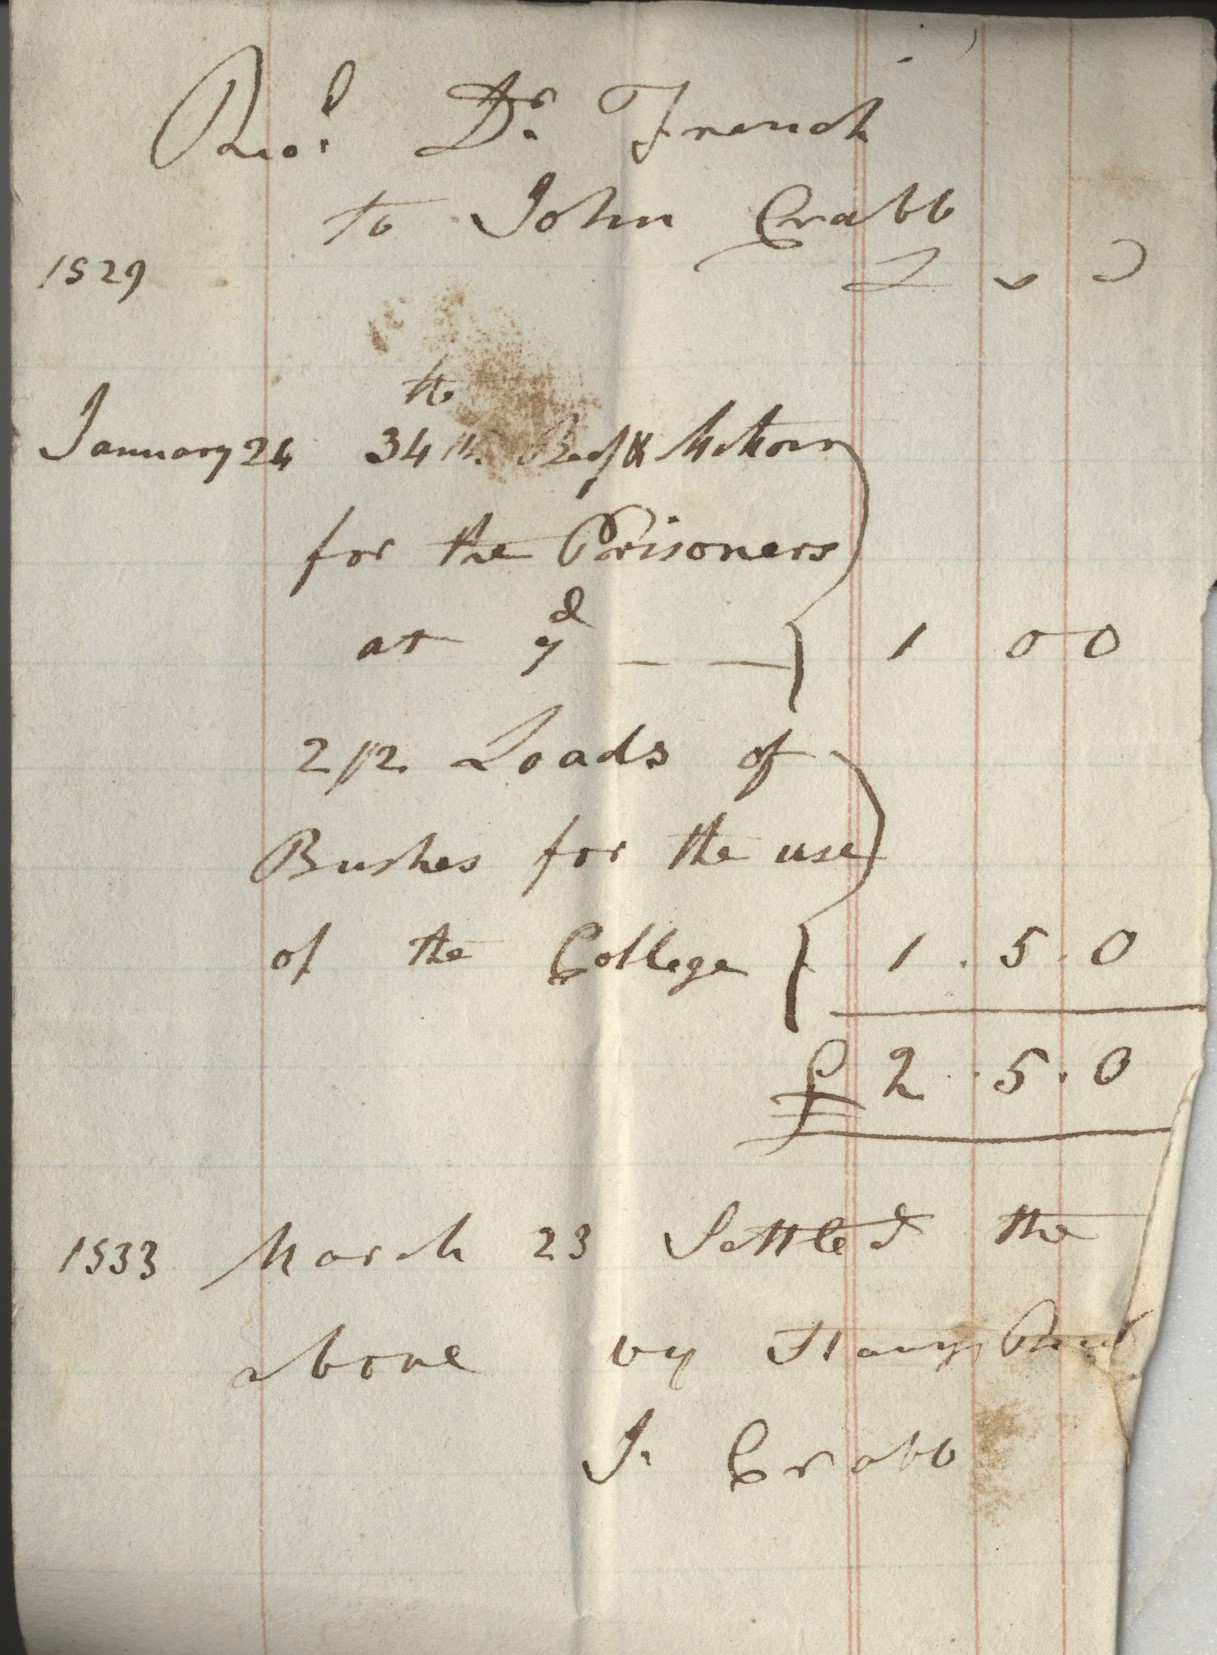 Revd. Dr. French
to John Crabb
1829 £ s D
January 24 34 lb. Beef & Mutton
for the Prisoners
at 7d — — 1 0 0
2 1/2 Loads of
Bushes for the use
of the College 1 . 5 . 0
£ 2 . 5 . 0
1833 March 23 Settled the
above by
J. Crabb